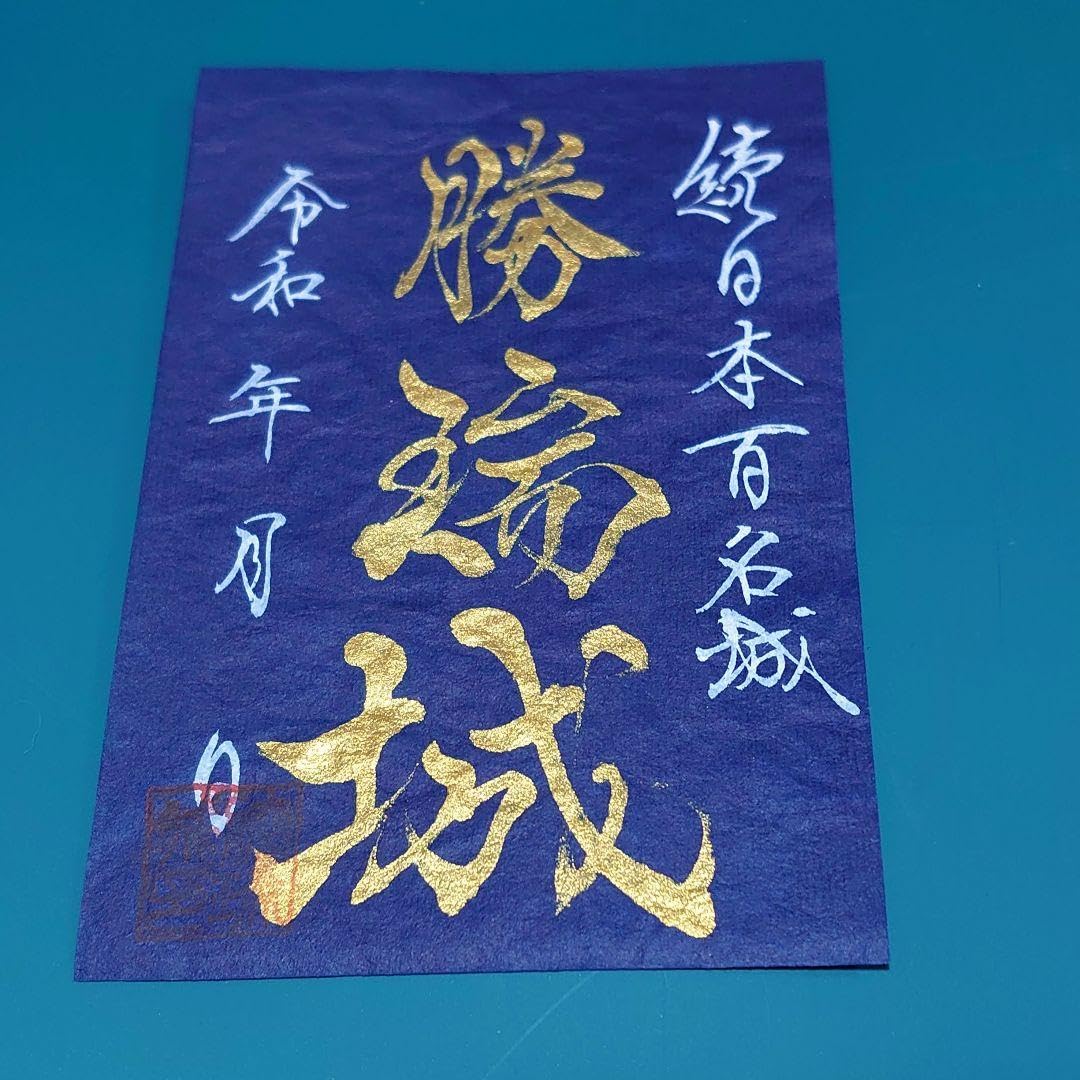 續日本百名城
勝瑞城
令和 年 月 日